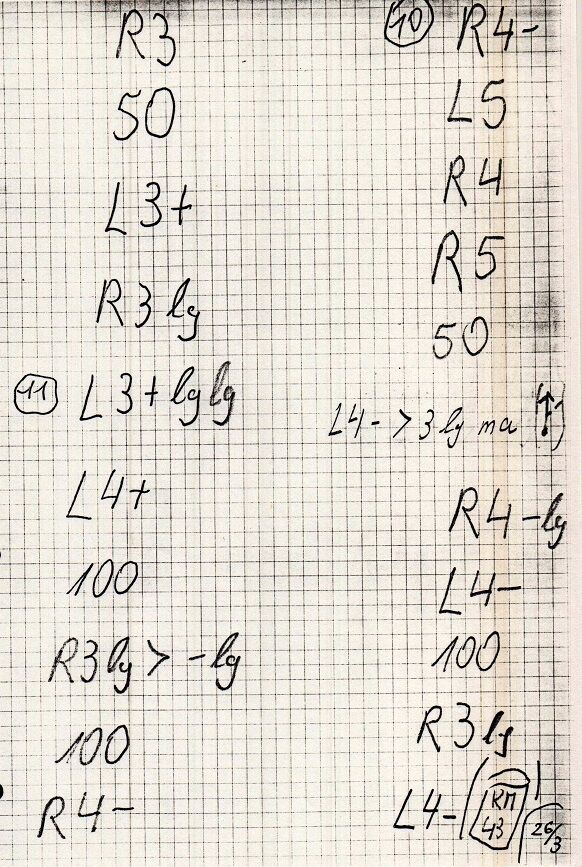 R3
50
L3+
R3 lg
11 L3+ lg lg
L4+
100
R3 lg > -lg
100
R4-
10 R4-
L5
R4
R5
50
L4- > 3 lg ma
R4-lg
L4-
100
R3 lg
L4- (КП 43) 26/3